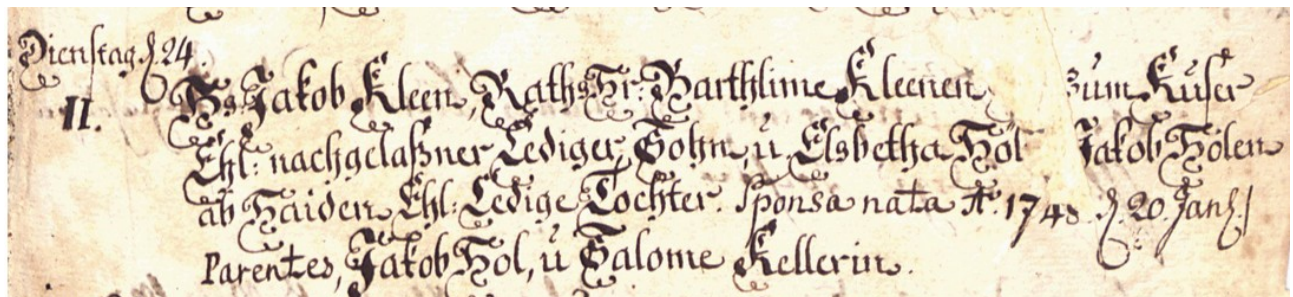 Dienstag d. 24.
II. Hs Jakob Kleen, Raths Hr: Barthlime Kleenen zum Kuser
Ehl: nachgelaßner Lediger Sohn, u Elsbetha Höl Jakob Hölen
ab Häiden Ehl: Ledige Tochter. Sponsa nata A. 1748 d. 20. Jan
Parentes, Jakob Höl, u Salome Kellerin.